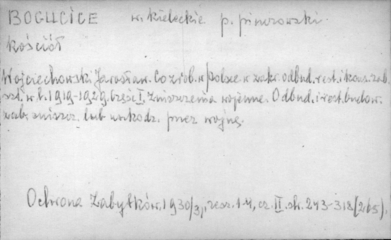 BOGUCICE w. kieleckie p. pinczowski
Kościół
Wojciechowski Jarosław. Co zrob. w Polsce w zakr. odbud. rest. i kons. zab.
szt. w l. 1919-1929. Część I. Zniszczenia wojenne. Odbud. i rest. budow.
zab. zniszcz. lub uszkodz. przez wojnę.
Ochrona Zabytków, 1930/31, zesz. 1-4, cz. II. str. 243-318 (265).